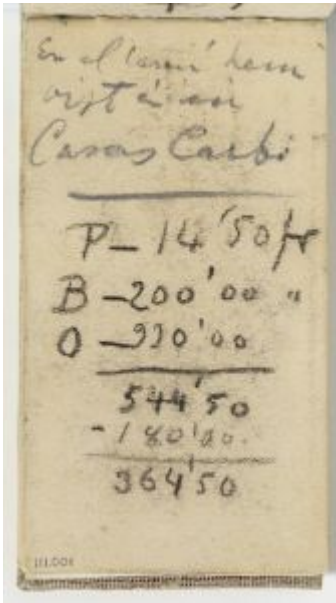 En el camí hem
vist a en
Casas Carbó
P - 14'50 fr
B - 200'00 "
O - 330'00
544'50
- 180'00
364'50